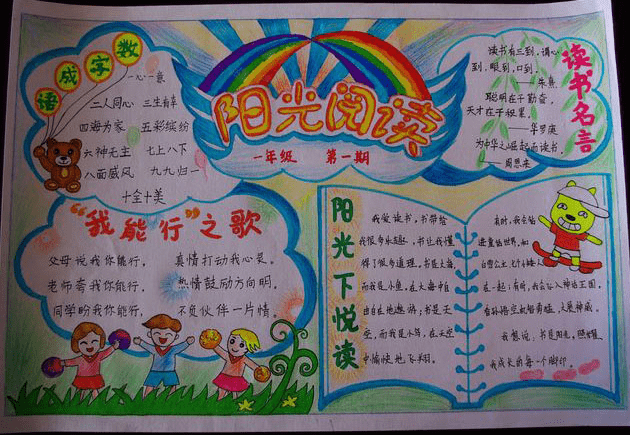 数字成语
一心一意
二人同心 三生有幸
四海为家 五彩缤纷
六神无主 七上八下
八面威风 九九归一
十全十美
阳光阅读
一年级 第一期
读书名言
读书有三到,谓心
到,眼到,口到。
——朱熹
聪明在于勤奋,
天才在于积累。
——华罗庚
为中华之崛起而读书。
——周恩来
“我能行”之歌
父母说我你能行, 真情打动我心灵。
老师夸我你能行, 热情鼓励方向明。
同学盼我你能行, 不负伙伴一片情。
阳光下悦读
我爱读书,书带给
我很多乐趣,书让我懂
得了很多道理。书是大海,
而我是小鱼,在大海中自
由自在地遨游;书是天
空,而我是小鸟,在天空
中愉快地飞翔。
有时,我会钻
进童话世界,和
白雪公主、七个小矮人
在一起;有时,我会 入神话王国,
看孙悟空 大展神威。
我想说:书是阳光,照耀
我成长的每一个脚印。